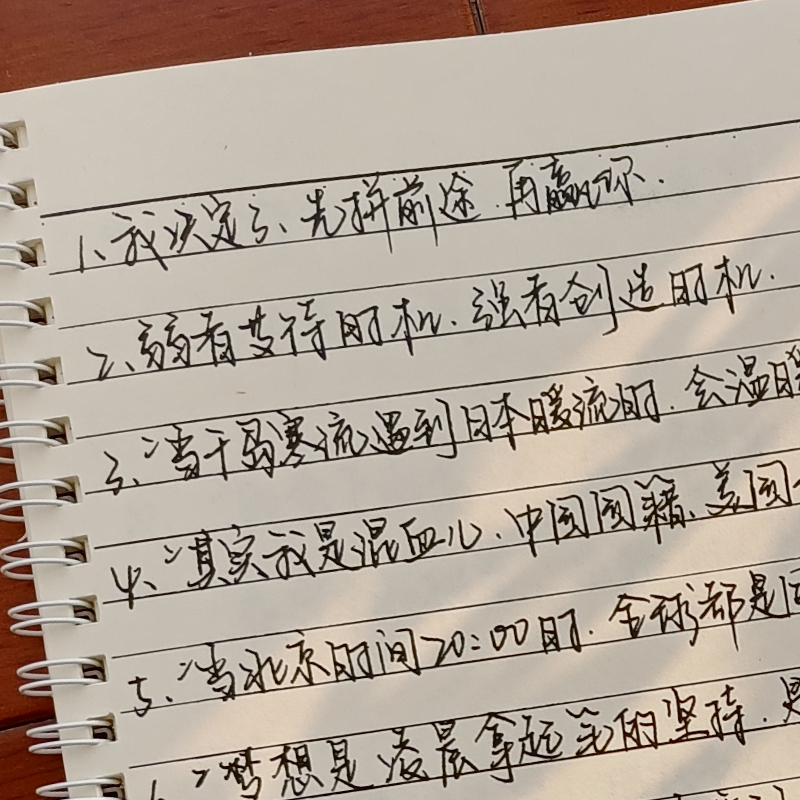 1、我决定了、先拼前途.再赢你.
2、弱者等待时机.强者创造时机.
3、"当千岛寒流遇到日本暖流时.会温暖
4、"其实我是混血儿.中国国籍、美国
5、"当北京时间20:00时.全球都是同
6、"梦想是凌晨拿起笔的坚持.是